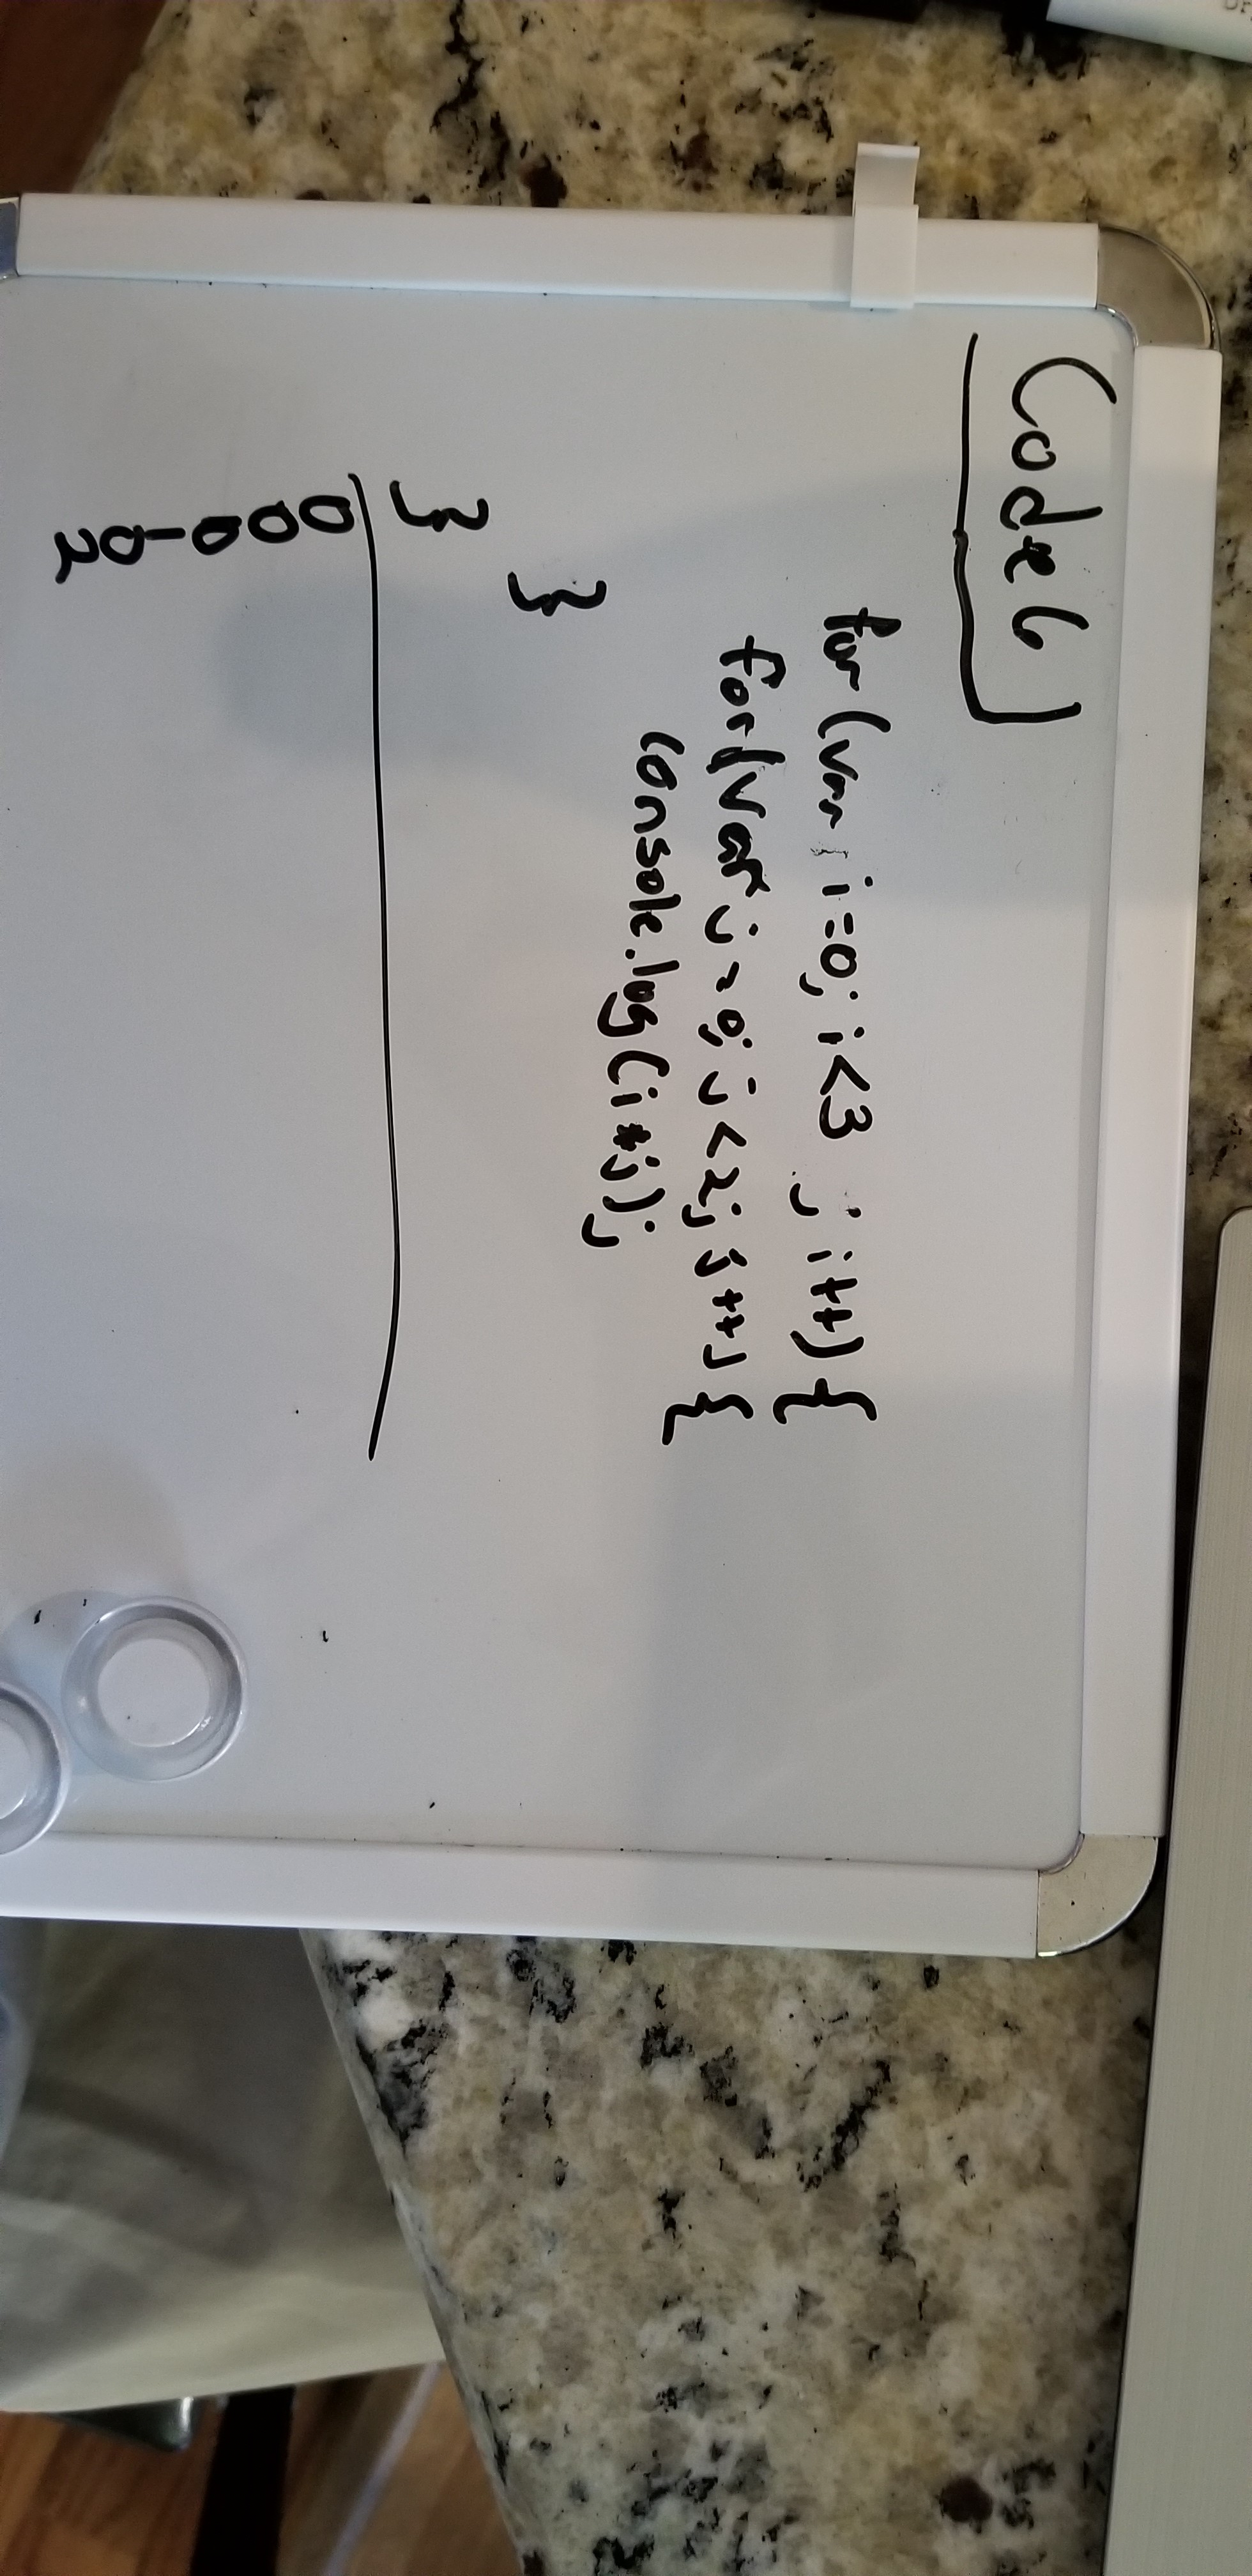 Code 6
for (var i=0; i<3 ; i++) {
for (var j=0; j<2; j++) {
console.log(i*j);
}
}
0
0
0
1
0
2